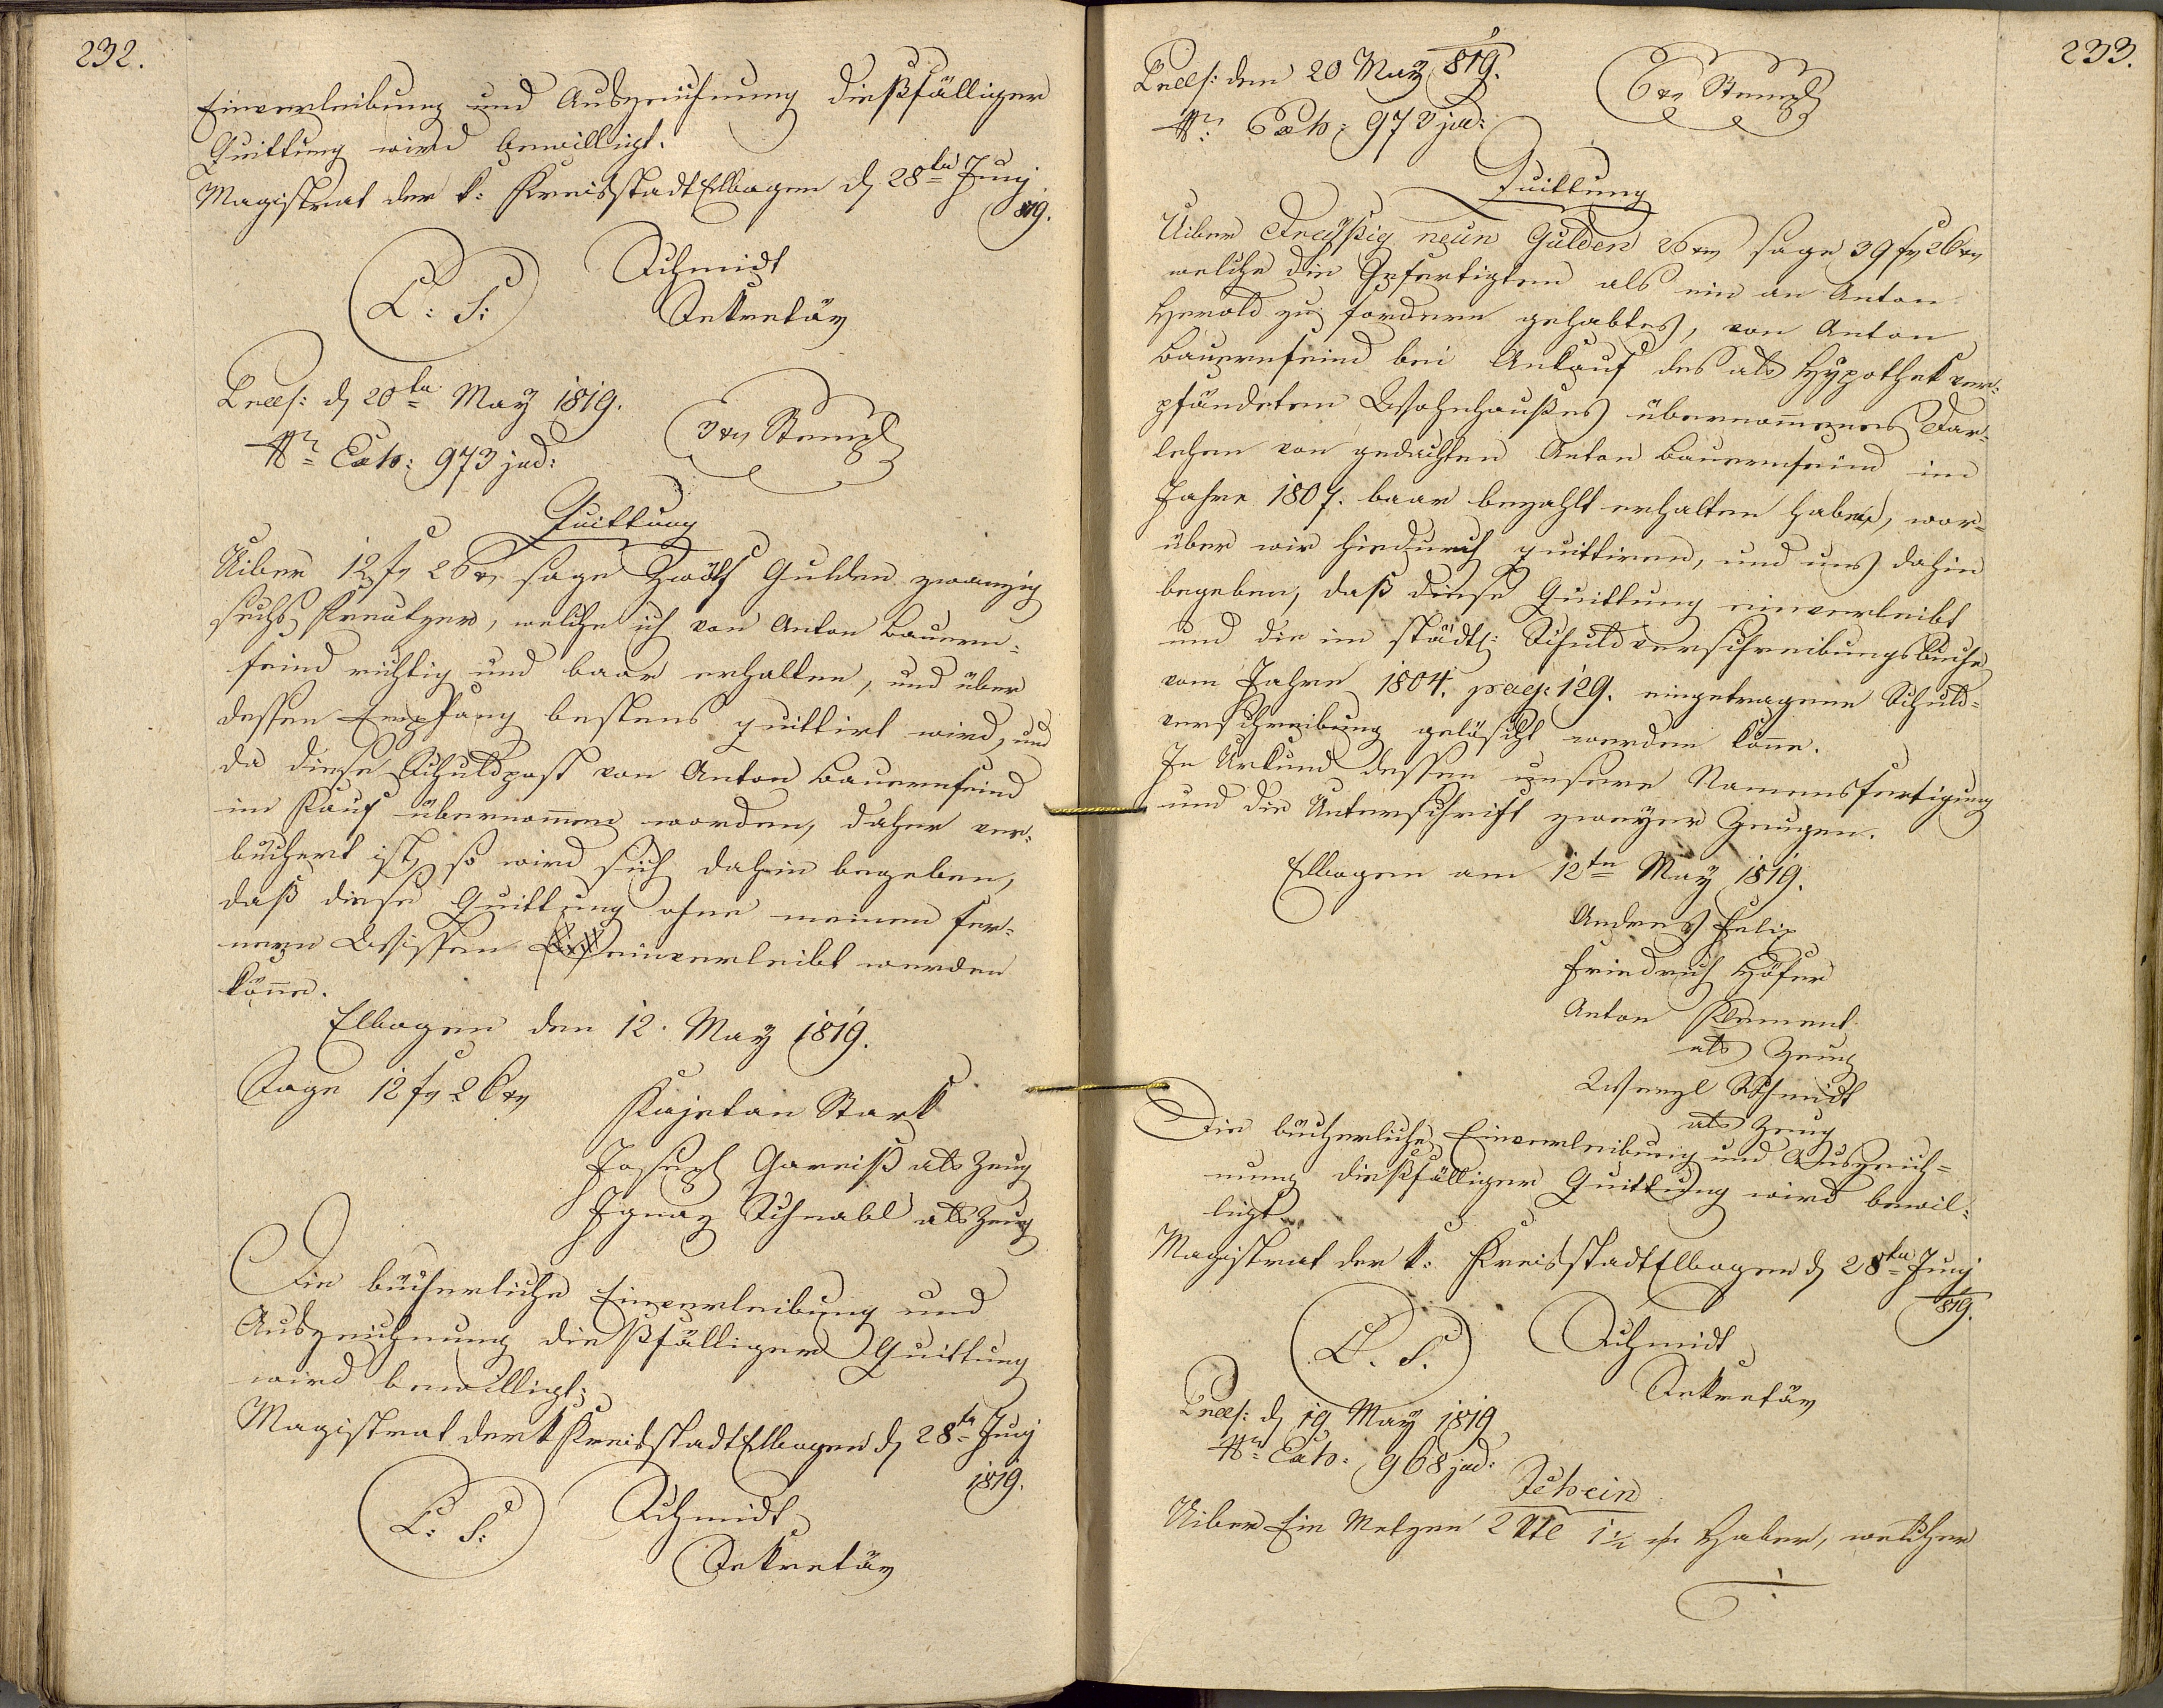 232.
Einverleibung und Auszeichnung dießfälliger
Quittung wird bewilligt.
Magistrat der k: Kreisstadt Elbogen d 28ten Juny
819.
L: S:
Schmidt
Sekretär
Præs: d 20ten May 1819.
Nr Exh: 973 jud:
3 xr Stempl
Quittung
Uiber 12 fr 26 xr sage Zwölf Gulden zwanzig
sechs Kreutzer, welche ich von Anton Bauern-
feind richtig und baar erhalten, und über
dessen Empfang bestens quittirt wird, und
da diese Schuldpost von Anton Bauernfeind
im Kauf übernommen worden, daher ver-
büchert ist, so wird sich dahin begeben,
daß diese Quittung ohne meinen fer-
nern Wissen einverleibt werden
könne.
Elbogen den 12. May 1819.
Sage 12 fr 26 xr
Kajetan Stark
Joseph Gareiß als Zeug
Ignaz Schnabl als Zeug
Die bücherliche Einverleibung und
Auszeichnung dießfälliger Quittung
wird bewilligt:
Magistrat der k Kreisstadt Elbogen d 28ten Juny
1819.
L: S:
Schmidt
Sekretär
233.
Præs: den 20 May 819.
Nr: Exh: 973 jud:
6 xr Stempl
Quittung
Uiber Dreyßig neun Gulden 26 xr sage 39 fr 26 xr
welche die Gefertigten als ein an Anton
Herold zu fordern gehabtes, von Anton
Bauernfeind bei Ankauf des als Hypothek ver-
pfändeten Wohnhaußes übernommenes Dar-
lehen von gedachten Anton Bauernfeind im
Jahre 1807. baar bezahlt erhalten haben, wor-
über wir hiedurch quittiren, und uns dahin
begeben, daß diese Quittung einverleibt
und die im städtl: Schuldverschreibungsbuche
vom Jahre 1804. pag: 129. eingetragene Schuld-
verschreibung gelöscht werden könne.
In Urkund dessen unsere Namensfertigung
und die Unterschrift zweyer Zeugen.
Elbogen am 12ten May 1819.
Andreas Felix
Friedrich Höfer
Anton Klement
als Zeug
Wenzl Schmidt
als Zeug
Die bücherliche Einverleibung und Auszeich-
nung dießfälliger Quittung wird bewil-
ligt
Magistrat der k: Kreisstadt Elbogen d 28ten Juny
819.
L. S.
Schmidt
Sekretär
Præs: d 19 May 1819
Nr Exh: 968 jud:
Schein
Uiber Ein Metzen 2 Vtl 1 1/2 Haber, welcher